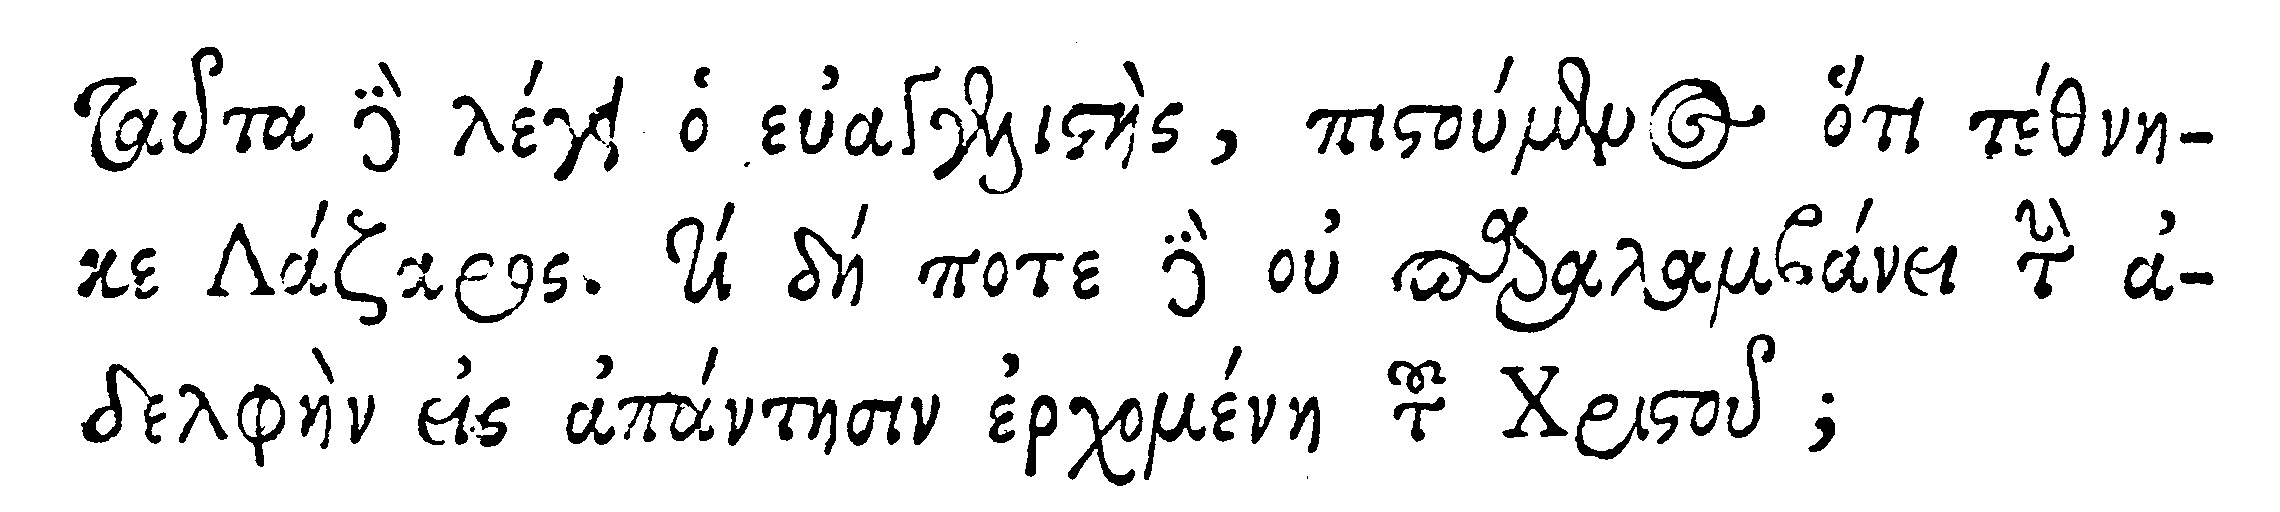 Ταῦτα δὲ λέγει ὁ εὐαγγελιστὴς, πιστούμενος ὅτι τέθνη-
κε Λάζαρος. Τί δή ποτε δὲ οὐ παραλαμβάνει τὴν ἀ-
δελφὴν εἰς ἀπάντησιν ἐρχομένη τοῦ Χριστοῦ;